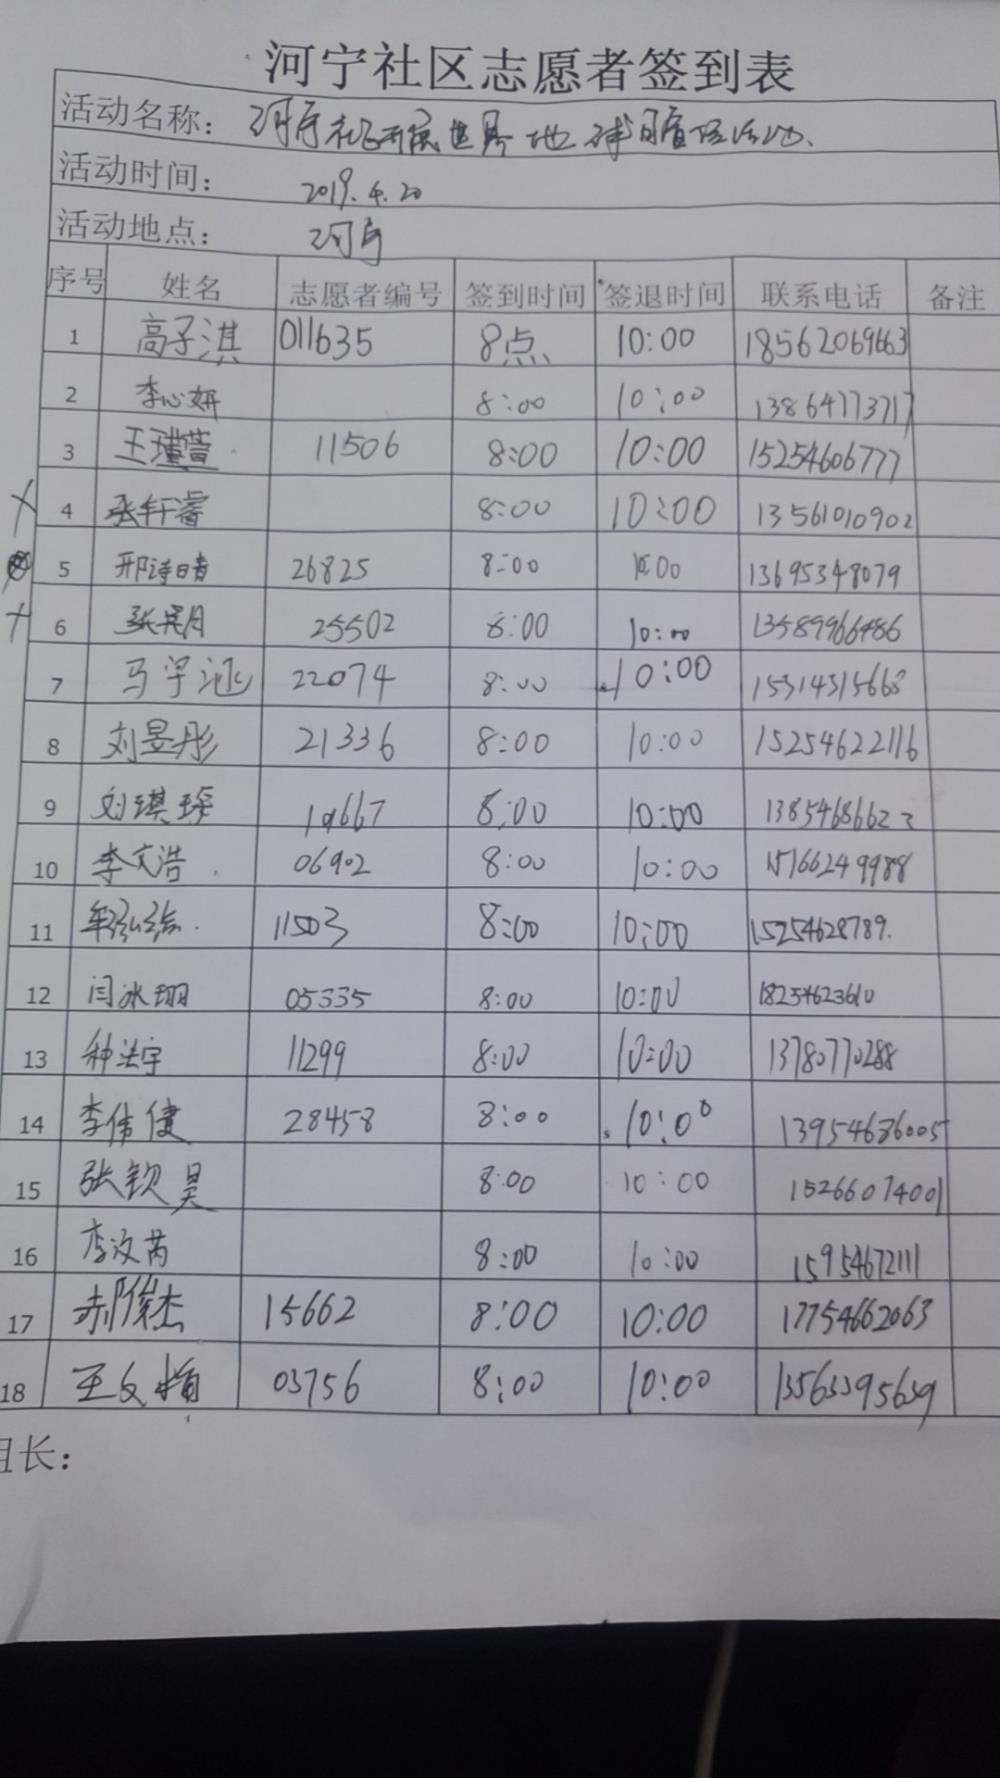 河宁社区志愿者签到表
活动名称：河宁社区开展世界地球日宣传活动.
活动时间：2019.4.20
活动地点：河宁
序号 姓名 志愿者编号 签到时间 签退时间 联系电话 备注
1 高子淇 011635 8点 10:00 18562069663
2 李心妍 8:00 10:00 13864773717
3 王瑾萱 11506 8:00 10:00 15254606777
4 张轩睿 8:00 10:00 13561010902
5 邢诗晴 26825 8:00 10:00 13695348079
6 张昊月 25502 8:00 10:00 13589966486
7 马宇涵 22074 8:00 10:00 15314315663
8 刘昱彤 21336 8:00 10:00 15254622116
9 刘琪琛 8:00 10:00 13854686623
10 李文浩 06902 8:00 10:00 15166249988
11 11503 8:00 10:00 15254628789.
12 闫冰珊 05335 8:00 10:00 18254623610
13 种法宇 11299 8:00 10:00 13780770288
14 李伟健 28458 8:00 10:00 13954686005
15 张钦昊 8:00 10:00 15266074001
16 李汶芮 8:00 10:00 15954672111
17 郝俊杰 15662 8:00 10:00 17754662063
18 王文楠 03756 8:00 10:00 13563395639
组长：